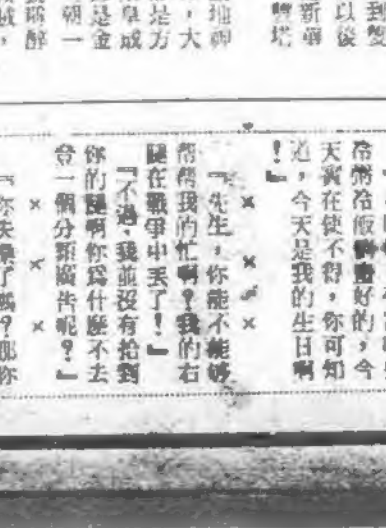 到雙
以後
塔
地神
，大
是方
是金
朝一
醉
冷粥冷飯好的，今
天實在使不得，你可知
道，今天是我的生日啊
！』
× × × ×
『先生，你能不能够
幫幫我的忙啊？我的右
腿在戰爭中丟了！』
『不過，我並沒有拾到
你的腿啊你爲什麼不去
登一個分類廣告呢？』
× × ×
『你失業了嗎？那你